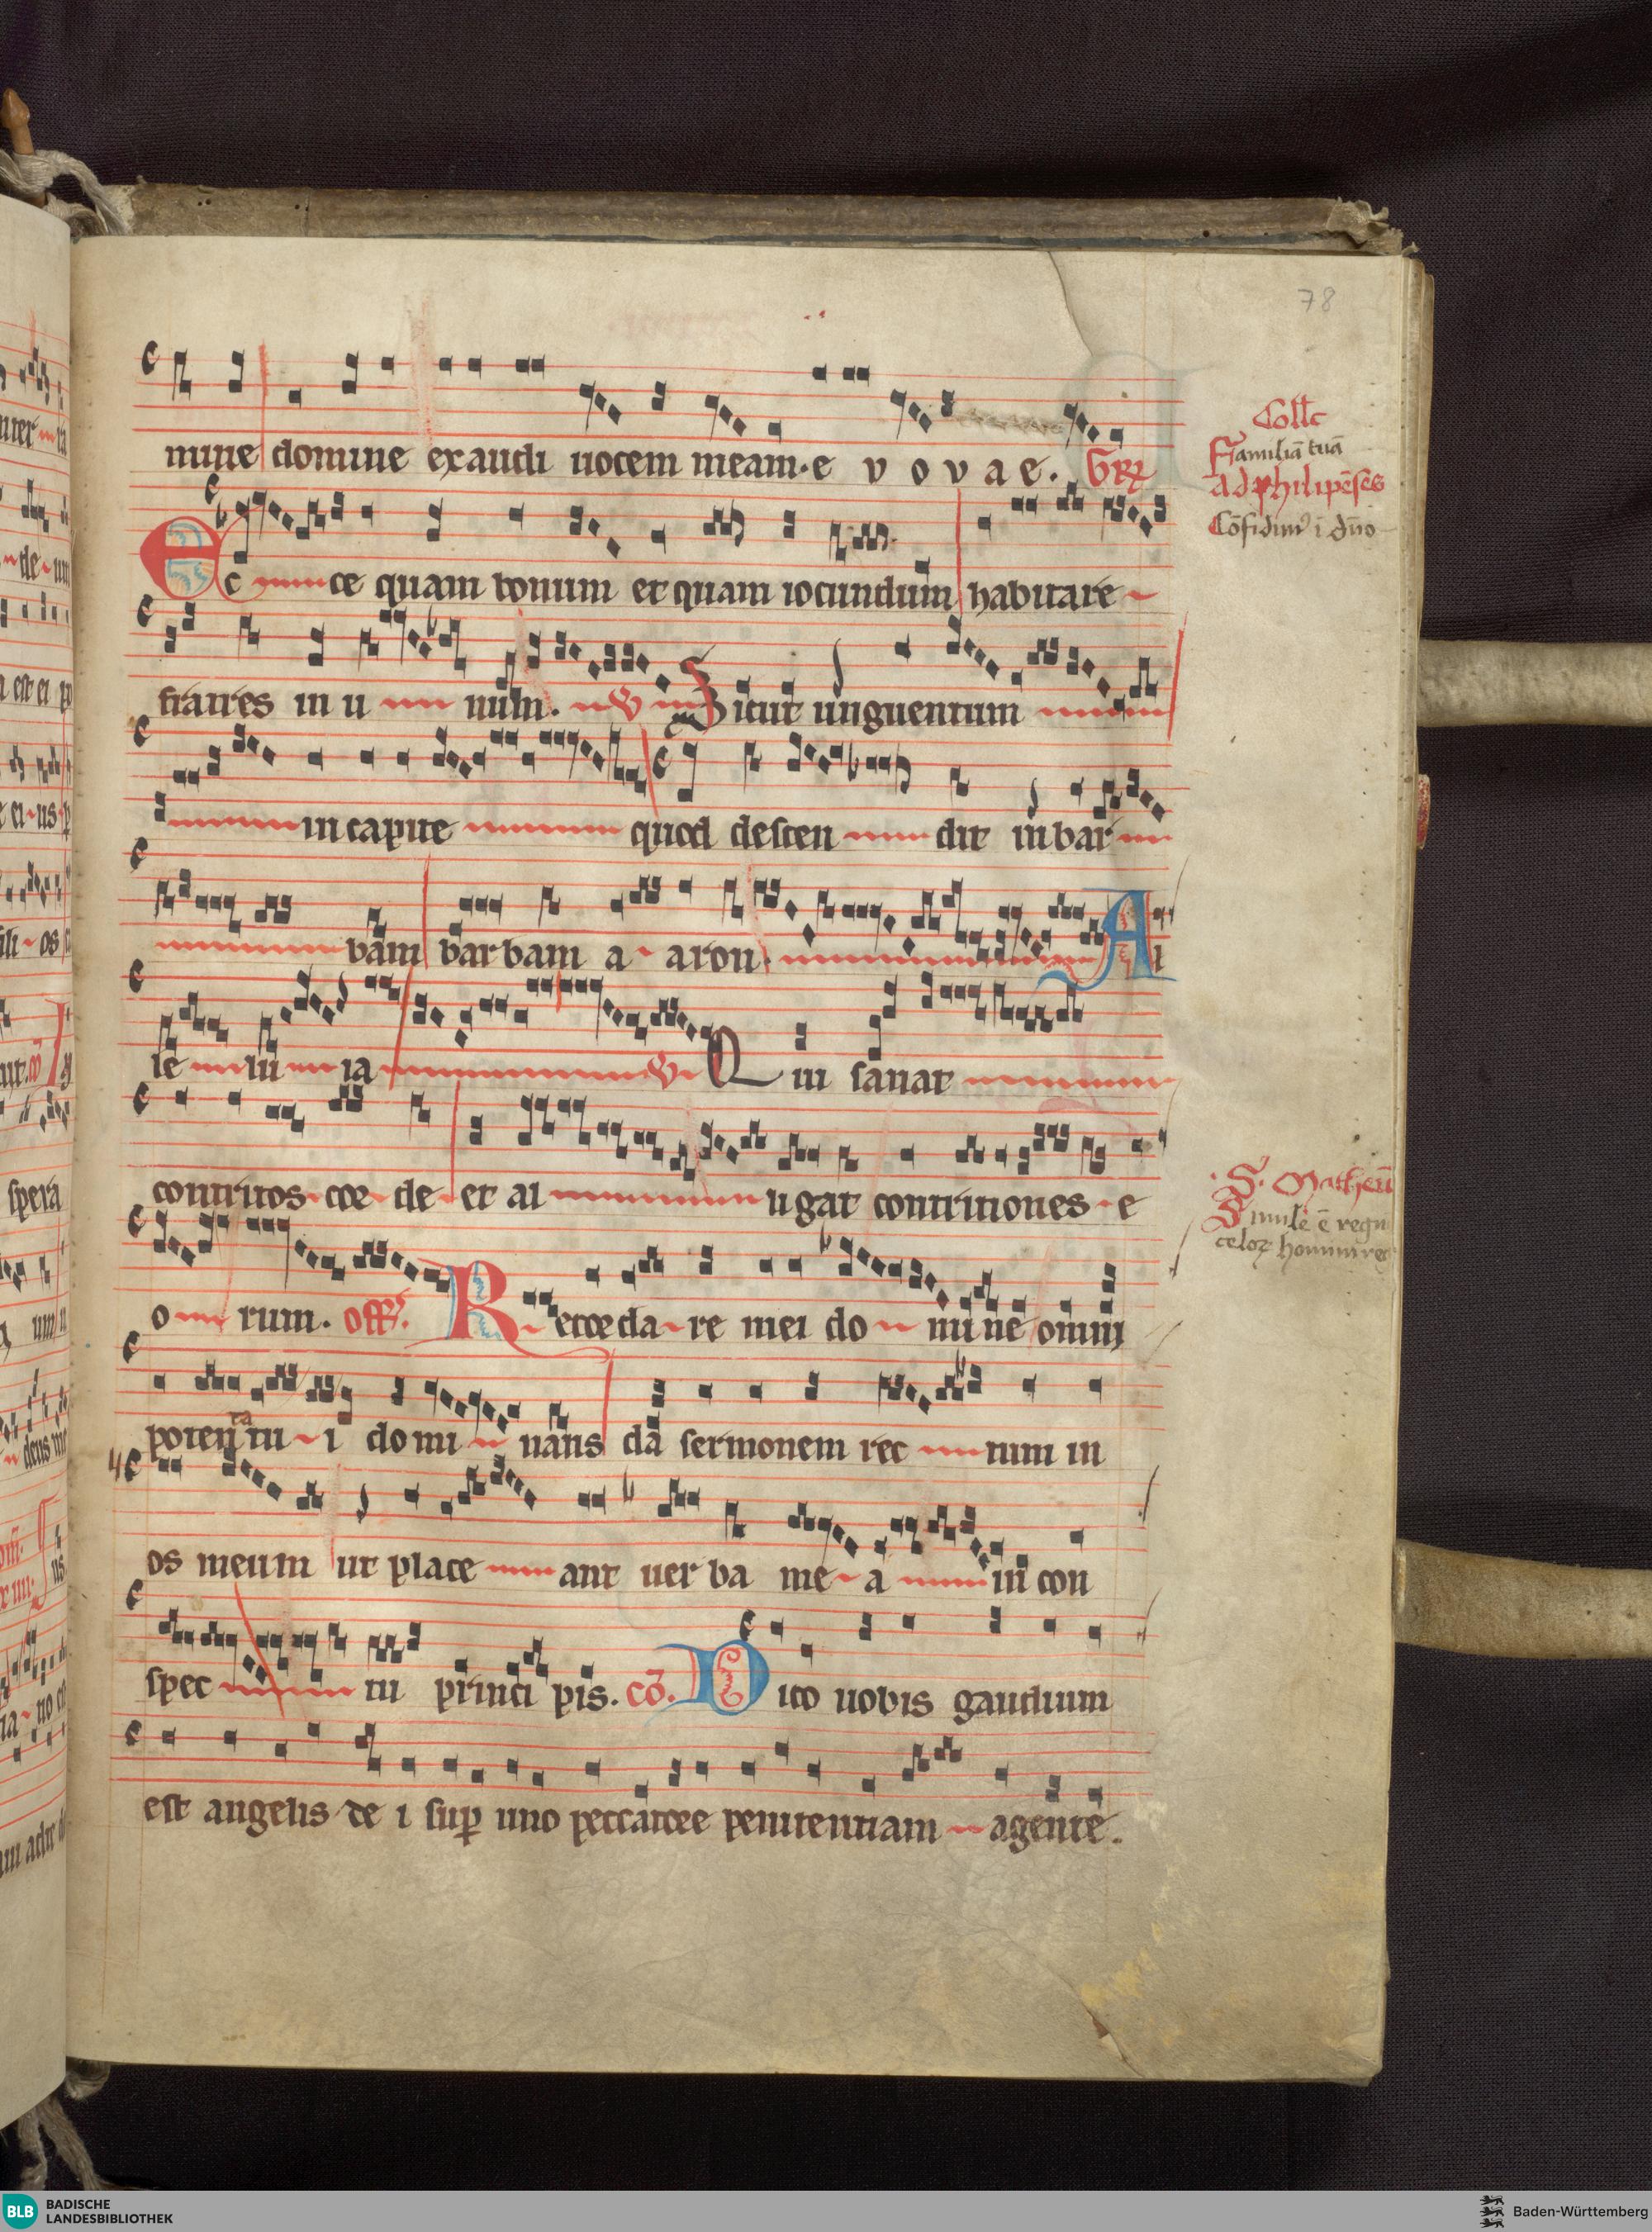 78
mine domine exaudi uocem meam. e v o v a e. Gr̄
Ecce quam bonum et quam iocundum habitare
fratres in u num. V Sicut unguentum
in capite quod descen dit in bar
bam barbam a aron. Al
le lu ia V Qui sanat
contritos corde et al ligat contritiones e
o rum. off. Recorda re mei do mine omni
potenta tu i domi nans da sermonem rec tum in
os meum ut place ant uer ba me a in con
spec tu princi pis. cō. Dico uobis gaudium
est angelis de i sup uno peccatore penitentiam agente.
Coll
Familiā tuā
ad philipēses
Cōfidim⁹ ī dño
S. Matheū
Simile ē regnū
celoꝝ homini re
BLB BADISCHE
LANDESBIBLIOTHEK
Baden-Württemberg